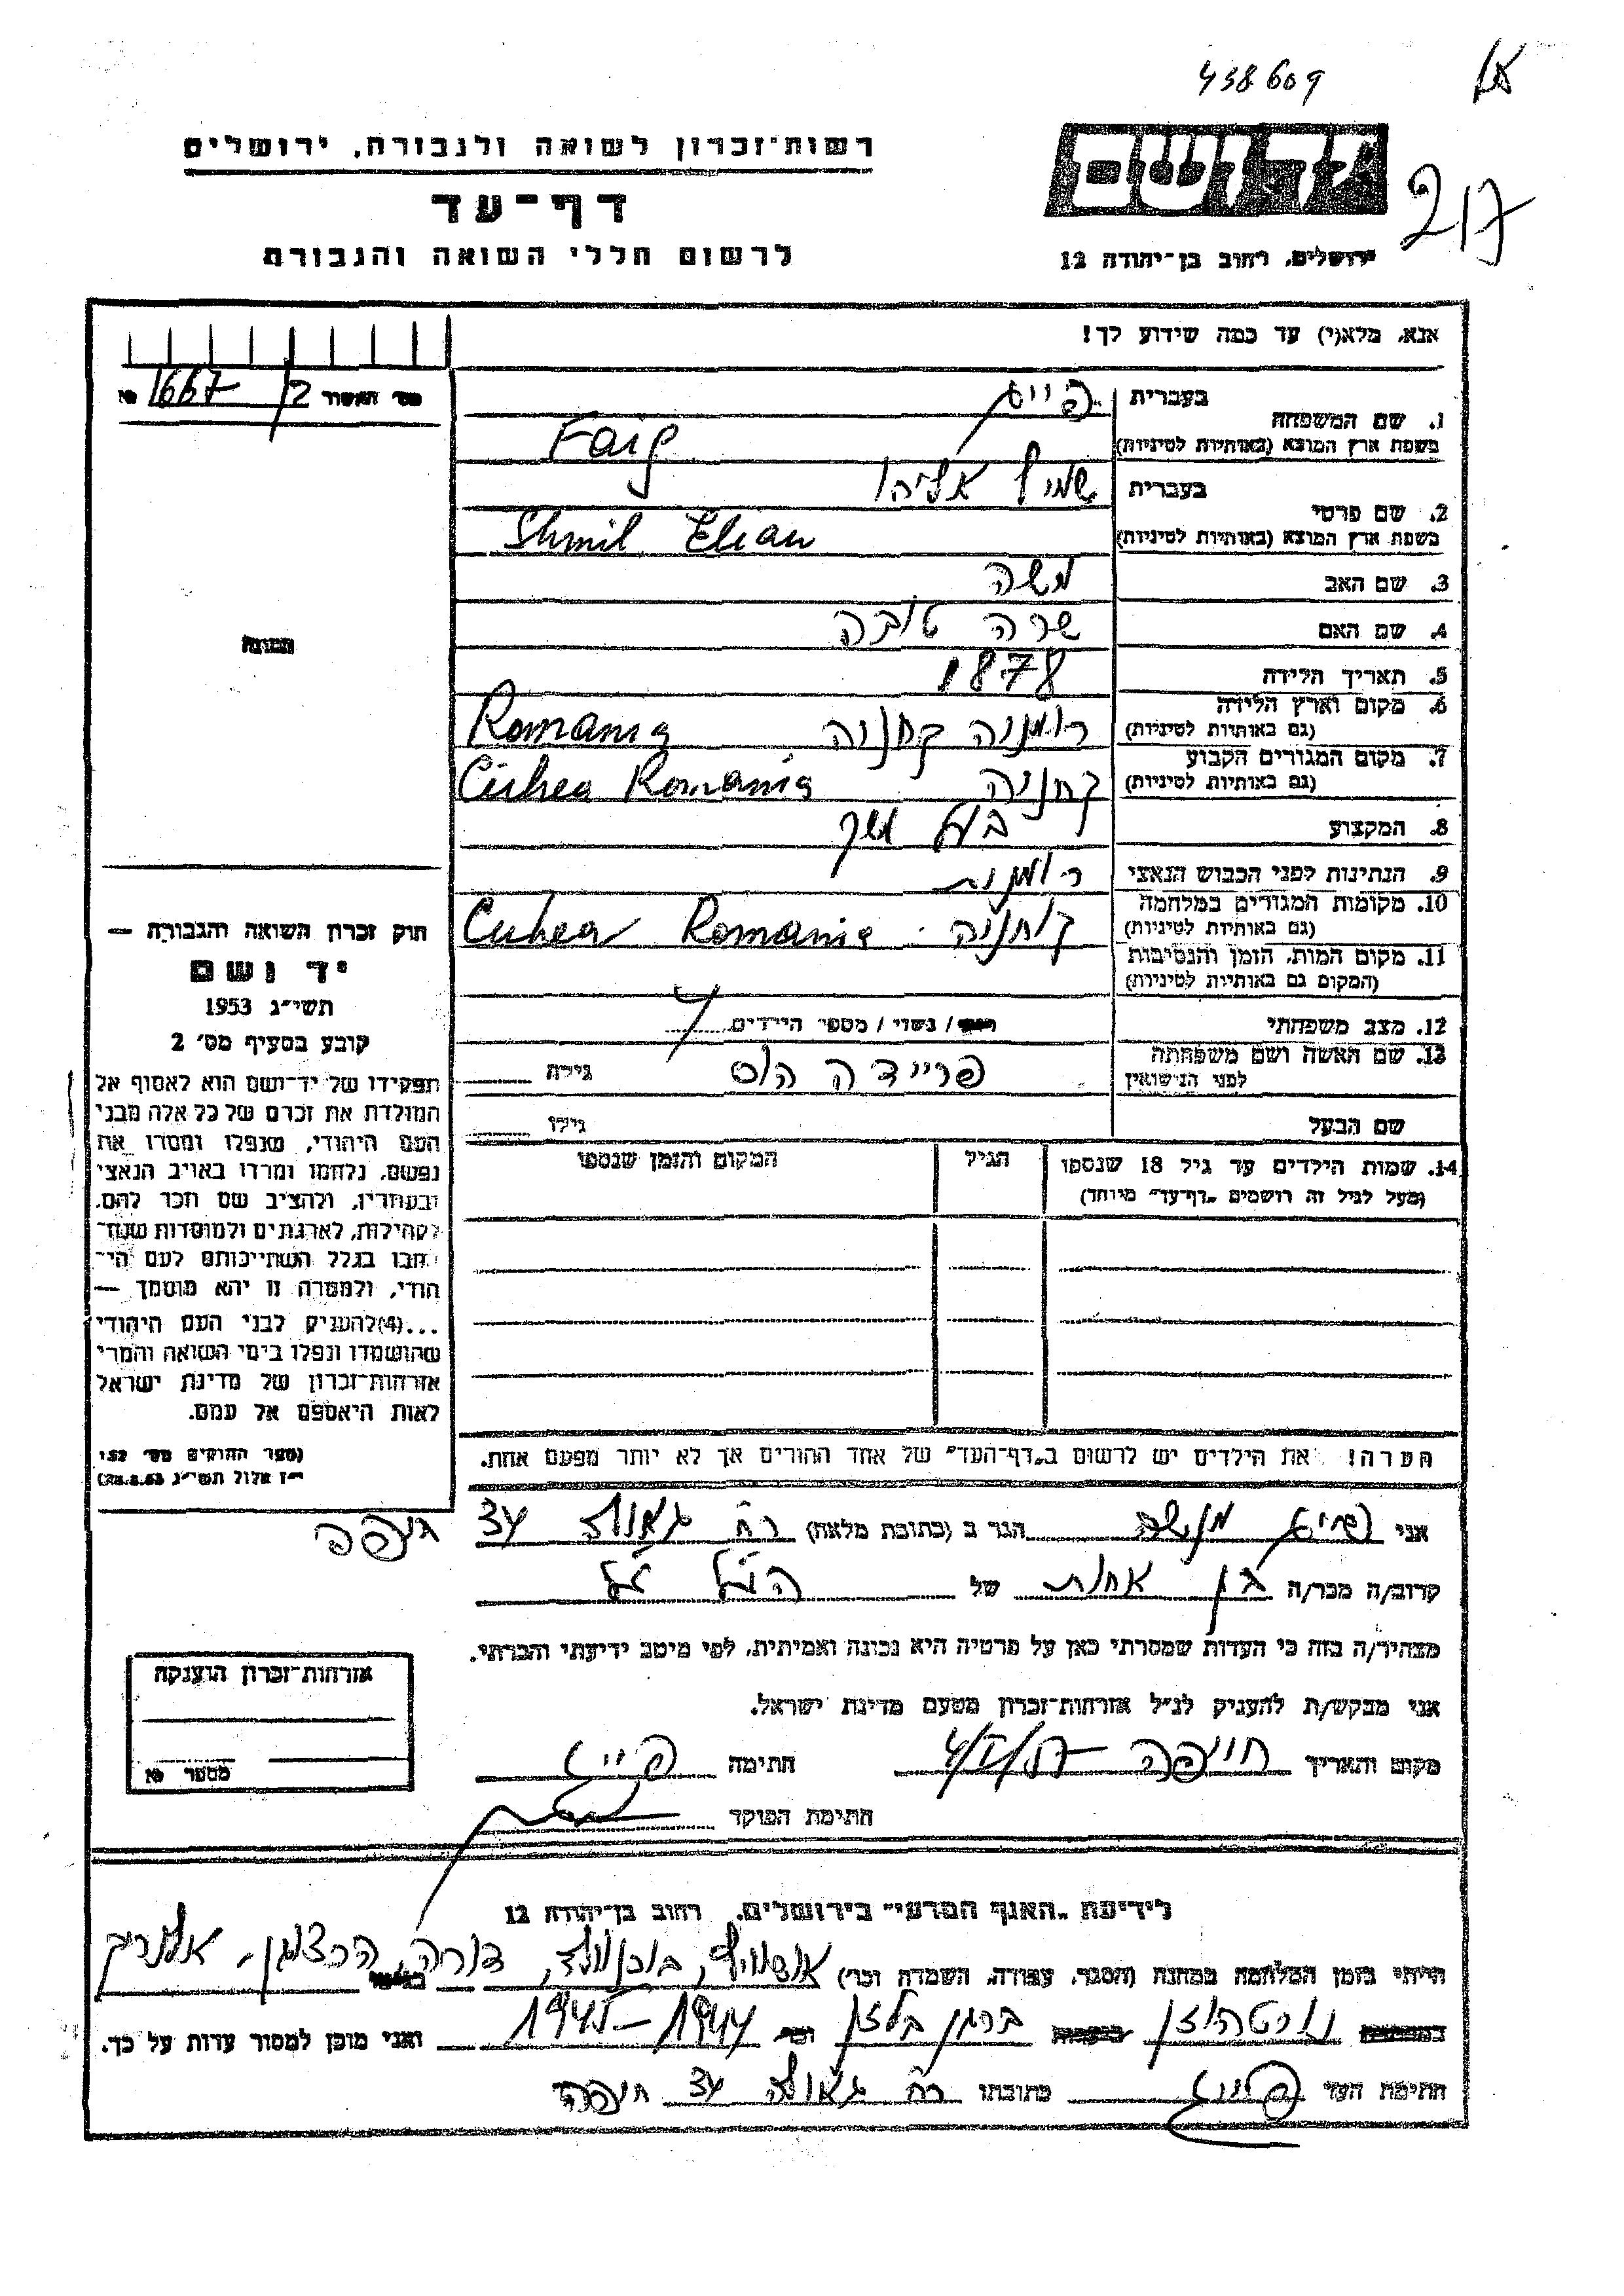 438609
רשות־זכרון לשואה ולגבורה, ירושלים
יד ושם
217
דף־עד
לרשום חללי השואה והגבורה
ירושלים, רחוב בן־יהודה 12
אנא, מלא(י) עד כמה שידוע לך!
מס' האשור 1667/2
1. שם המשפחה
בעברית פייג
בשפת ארץ המוצא (באותיות לטיניות) Faig
2. שם פרטי
בעברית שמיל אליהו
בשפת ארץ המוצא (באותיות לטיניות) Shmil Elian
3. שם האב משה
4. שם האם שרה טובה
5. תאריך הלידה 1878
6. מקום וארץ הלידה רומניה קחניה Romania
(גם באותיות לטיניות)
7. מקום המגורים הקבוע קחניה Cuhea Romania
(גם באותיות לטיניות)
8. המקצוע בעל
9. הנתינות לפני הכבוש הנאצי רומנית
10. מקומות המגורים במלחמה קוחניה Cuhea Romania
(גם באותיות לטיניות)
11. מקום המות, הזמן והנסיבות
(המקום גם באותיות לטיניות)
12. מצב משפחתי רווק / נשוי / מספר הילדים 4
13. שם האשה ושם משפחתה פריידה הוס גילה
לפני הנישואין
שם הבעל גילו
14. שמות הילדים עד גיל 18 שנספו הגיל המקום והזמן שנספו
(מעל לגיל זה רושמים „דף־עד" מיוחד)
הערה! את הילדים יש לרשום ב„דף־העד" של אחד ההורים אך לא יותר מפעם אחת.
התמונה
חוק זכרון השואה והגבורה —
יד ושם
תשי״ג 1953
קובע בסעיף מס׳ 2
תפקידו של יד־ושם הוא לאסוף אל
המולדת את זכרם של כל אלה מבני
העם היהודי, שנפלו ומסרו את
נפשם, נלחמו ומרדו באויב הנאצי
ובעוזריו, ולהציב שם וזכר להם,
לקהילות, לארגונים ולמוסדות שנח־
רבו בגלל השתייכותם לעם הי־
הודי, ולמטרה זו יהא מוסמך —
...(4)להעניק לבני העם היהודי
שהושמדו ונפלו בימי השואה והמרי
אזרחות־זכרון של מדינת ישראל
לאות היאספם אל עמם.
(ספר החוקים מס׳ 132
י״ז אלול תשי״ג 28.8.53)
אני פייג מנשה הגר ב (כתובת מלאה) רח גאולה 34 חיפה
קרוב/ה מכר/ה בן אחות של הנ״ל
מצהיר/ה בזה כי העדות שמסרתי כאן על פרטיה היא נכונה ואמיתית, לפי מיטב ידיעתי והכרתי.
אני מבקש/ת להעניק לנ״ל אזרחות־זכרון מטעם מדינת ישראל.
מקום ותאריך חייפה חתימה פייג
חתימת הפוקד
אזרחות־זכרון הוענקה
מספר
לידיעת „האגף המדעי" בירושלים, רחוב בן־יהודה 12
הייתי בזמן המלחמה במחנה (הסגר, עבודה, השמדה וכו') אושוויץ, בוכנוולד, דורה,
נורטהוזן ברגן בלזן 1944–1945 ואני מוכן למסור עדות על כך.
חתימת העד פייג כתובתו רח גאולה 34 חיפה